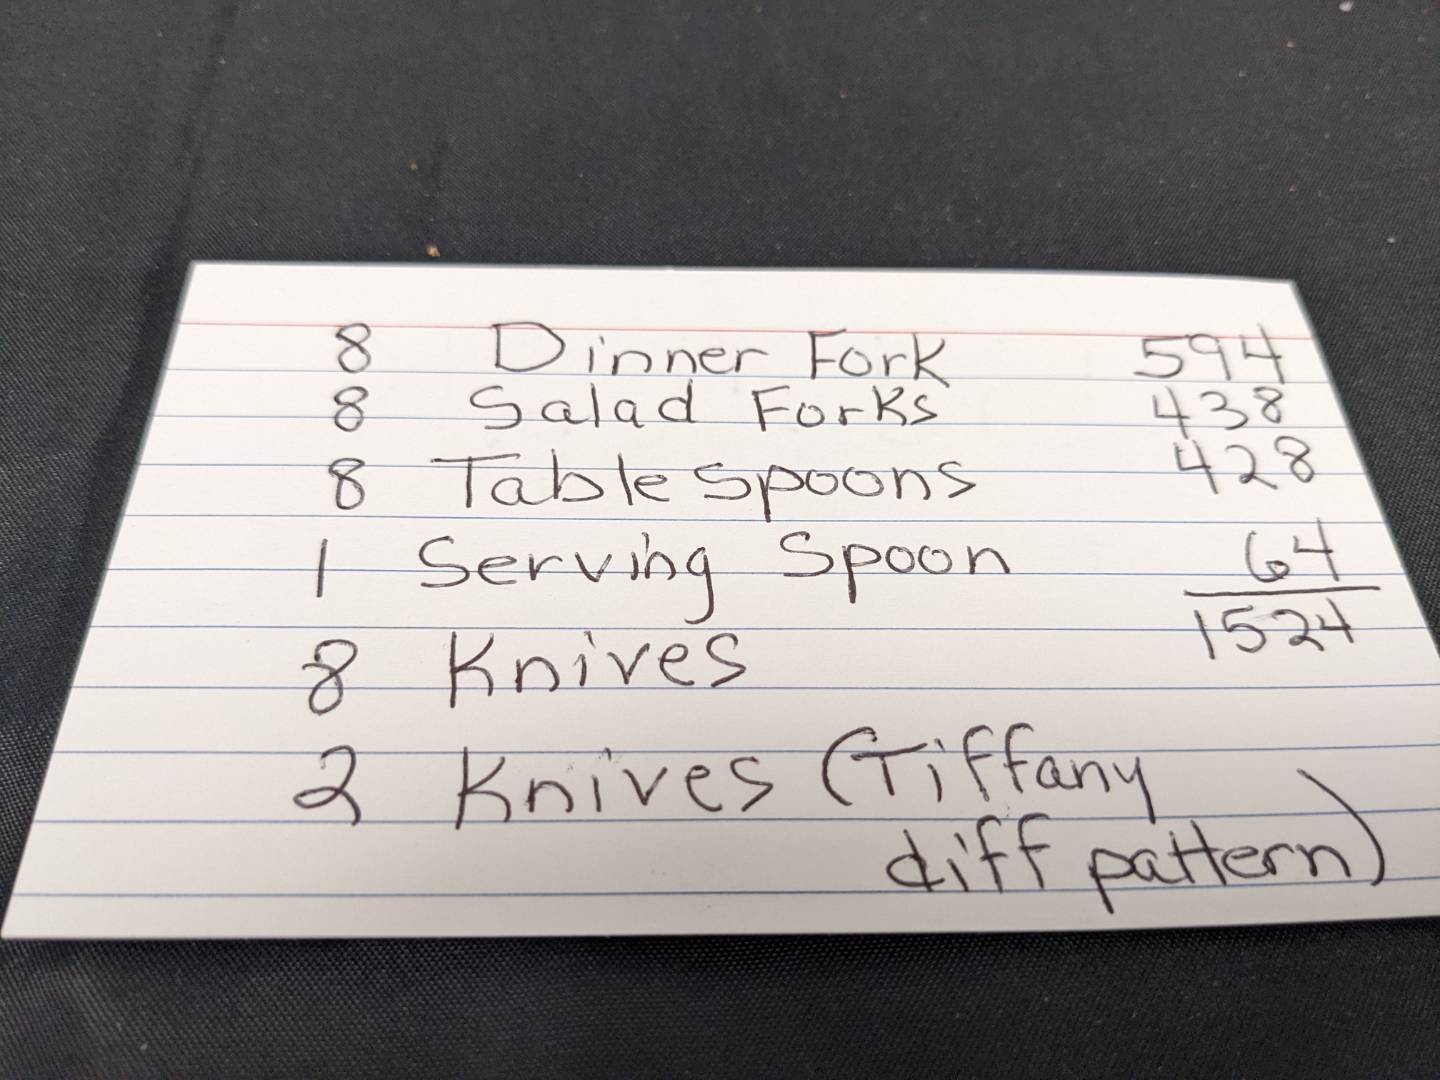 8 Dinner Fork 594
8 Salad Forks 438
8 Table Spoons 428
1 Serving Spoon 64
1524
8 Knives
2 Knives (Tiffany
diff pattern)